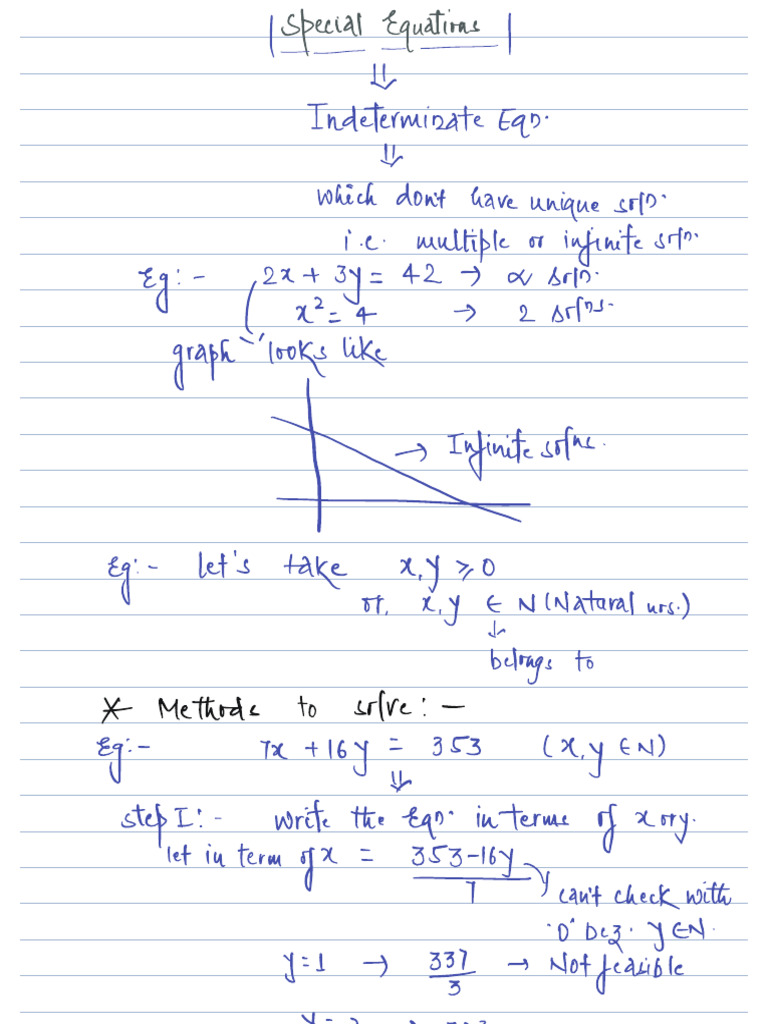 Special Equations
⇓
Indeterminate Eqn.
⇓
which don't have unique soln.
i.e. multiple or infinite soln.
Eg:- 2x + 3y = 42 → ∝ soln.
x² = 4 → 2 solns.
graph looks like
→ Infinite solns.
Eg:- let's take x, y ⩾ 0
or, x, y ∈ N (Natural nrs.)
↓
belongs to
* Methods to solve:-
Eg:- 7x + 16y = 353 (x, y ∈ N)
⇓
step I:- Write the Eqn. in terms of x or y.
let in term of x = 353-16y / 7
can't check with
'0' Bcz. y ∈ N.
y=1 → 337/3 → Not feasible